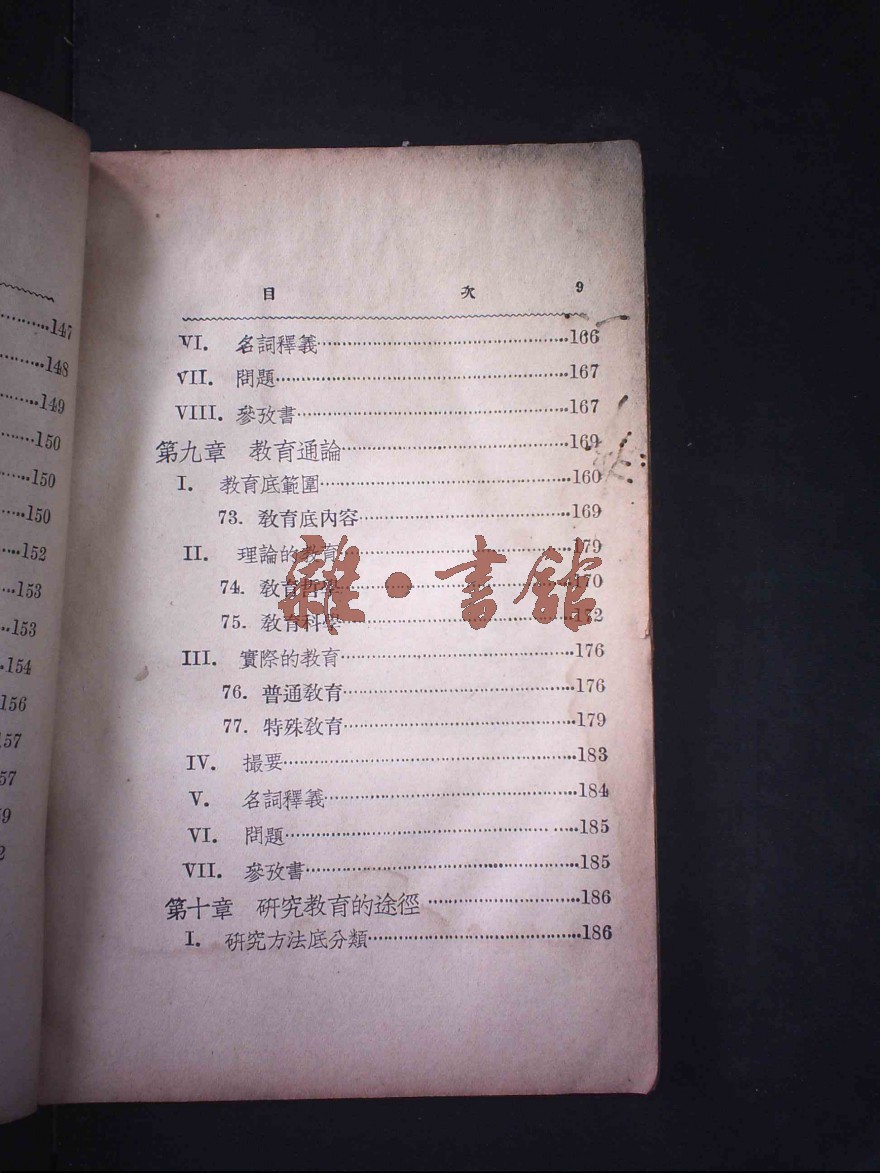 147
148
149
150
150
150
152
153
153
154
156
157
57
9
2
目 次 9
VI. 名詞釋義 166
VII. 問題 167
VIII. 參攷書 167
第九章 教育通論 169
I. 教育底範圍 160
73. 教育底內容 169
II. 理論的教育 179
74. 教育哲學 170
75. 教育科學 172
III. 實際的教育 176
76. 普通教育 176
77. 特殊教育 179
IV. 撮要 183
V. 名詞釋義 184
VI. 問題 185
VII. 參攷書 185
第十章 研究教育的途徑 186
I. 研究方法底分類 186
雜·書館